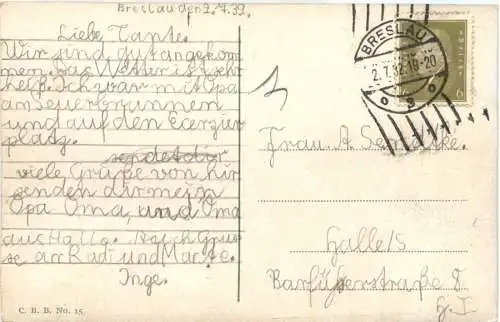 Breslau den 2.7.32.
Liebe Tante.
Wir sind gut angekom
men. Das Wetter ist sehr
heiß. Ich war mit Opa
am
und auf den Exerzier
platz.
sendet dir
viele Grüße von hir
senden dir mein
Opa Oma, und Oma
aus Halle. Auch Grü
se an Radi und
Inge.
C. B. B. No. 15.
BRESLAU
2.7.32.19-20
o 9 o
6
Frau A.
Halle/S
Barfüßerstraße 8
H. I